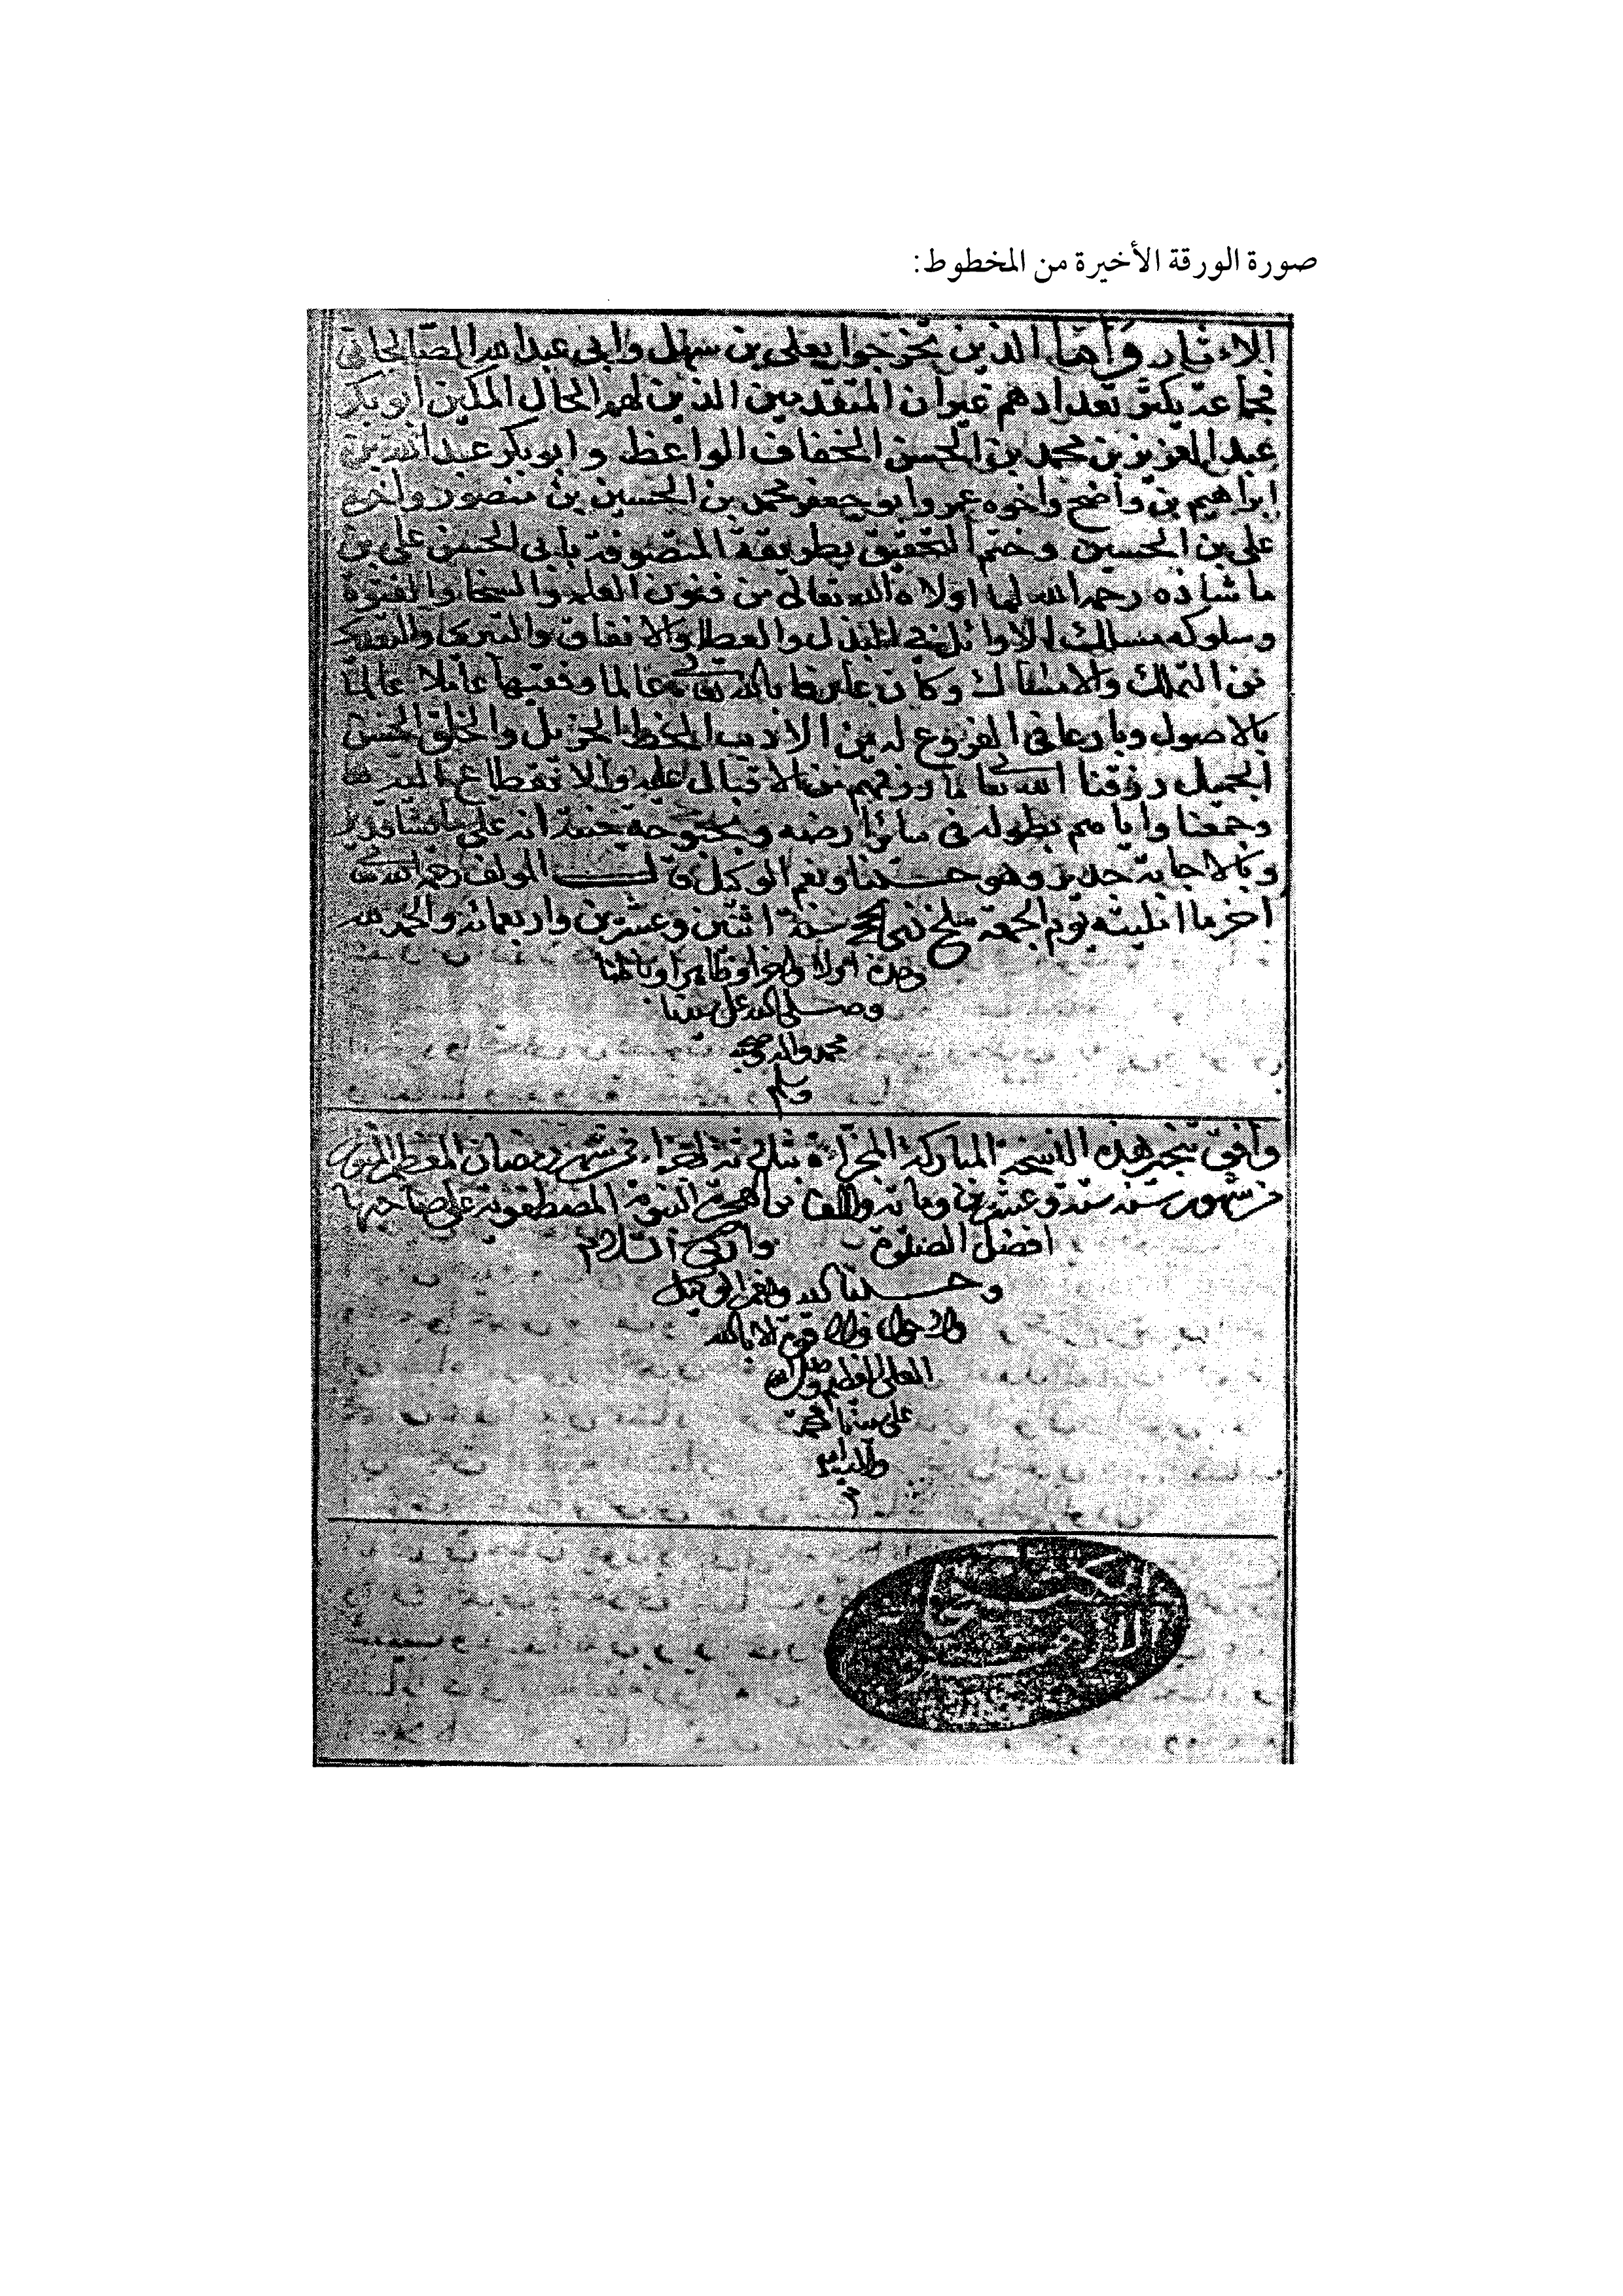 صورة الورقة الأخيرة من المخطوط:
الاختيار وأما الذين تخرجوا بعلي بن سهل وأبي عبد الله الصالحاني
فجماعة يكثر تعدادهم غير أن المتقدمين الذين لهم الحال المكين أبو بكر
عبد العزيز بن محمد بن الحسن الخفاف الواعظ وابو بكر عبد الله بن
ابراهيم بن واضح واخوه عمر وابو جعفر محمد بن الحسين بن منصور وأخوه
علي بن الحسين وختم التحقيق بطريقة المتصوفة بأبي الحسن علي بن
ماشاذه رحمه الله لما اولاه الله تعالى من فنون العلم والسخا والفتوة
وسلوكه مسالك الاوائل في البذل والعطا والانفاق والتبري والتعري
من التملك والامساك وكان عارفا بالله تعالى عالما وفقيها عاملا عالما
بالاصول وبارعا في الفروع له من الادب الحظ الجزيل والخلق الحسن
الجميل رزقنا الله تعالى ما رزقهم من الاقبال عليه والانقطاع اليه
وجمعنا واياهم بطوله في سائر ارضه وبحبوحة جنته انه على ما يشا قدير
وبالاجابة جدير وهو حسبنا ونعم الوكيل قال المولف رحمه الله تعالى
اخر ما امليته يوم الجمعة سلخ ذي الحجة سنة اثنين وعشرين واربعمائة والحمد لله
وحده اولا واخرا وظاهرا وباطنا
وصلى الله على سيدنا
محمد واله وصحبه
وسلم
وافق نجز هذه النسخة المباركة المجزاة ثلاثة اجزاء في شهر رمضان المعظم
من شهور سنة ستة وعشرين وماية والف من الهجرة النبوية المصطفوية على صاحبها
افضل الصلوة وازكى السلام
وحسبنا الله ونعم الوكيل
ولا حول ولا قوة الا بالله
العلي العظيم وصلى الله
على سيدنا محمد
واله